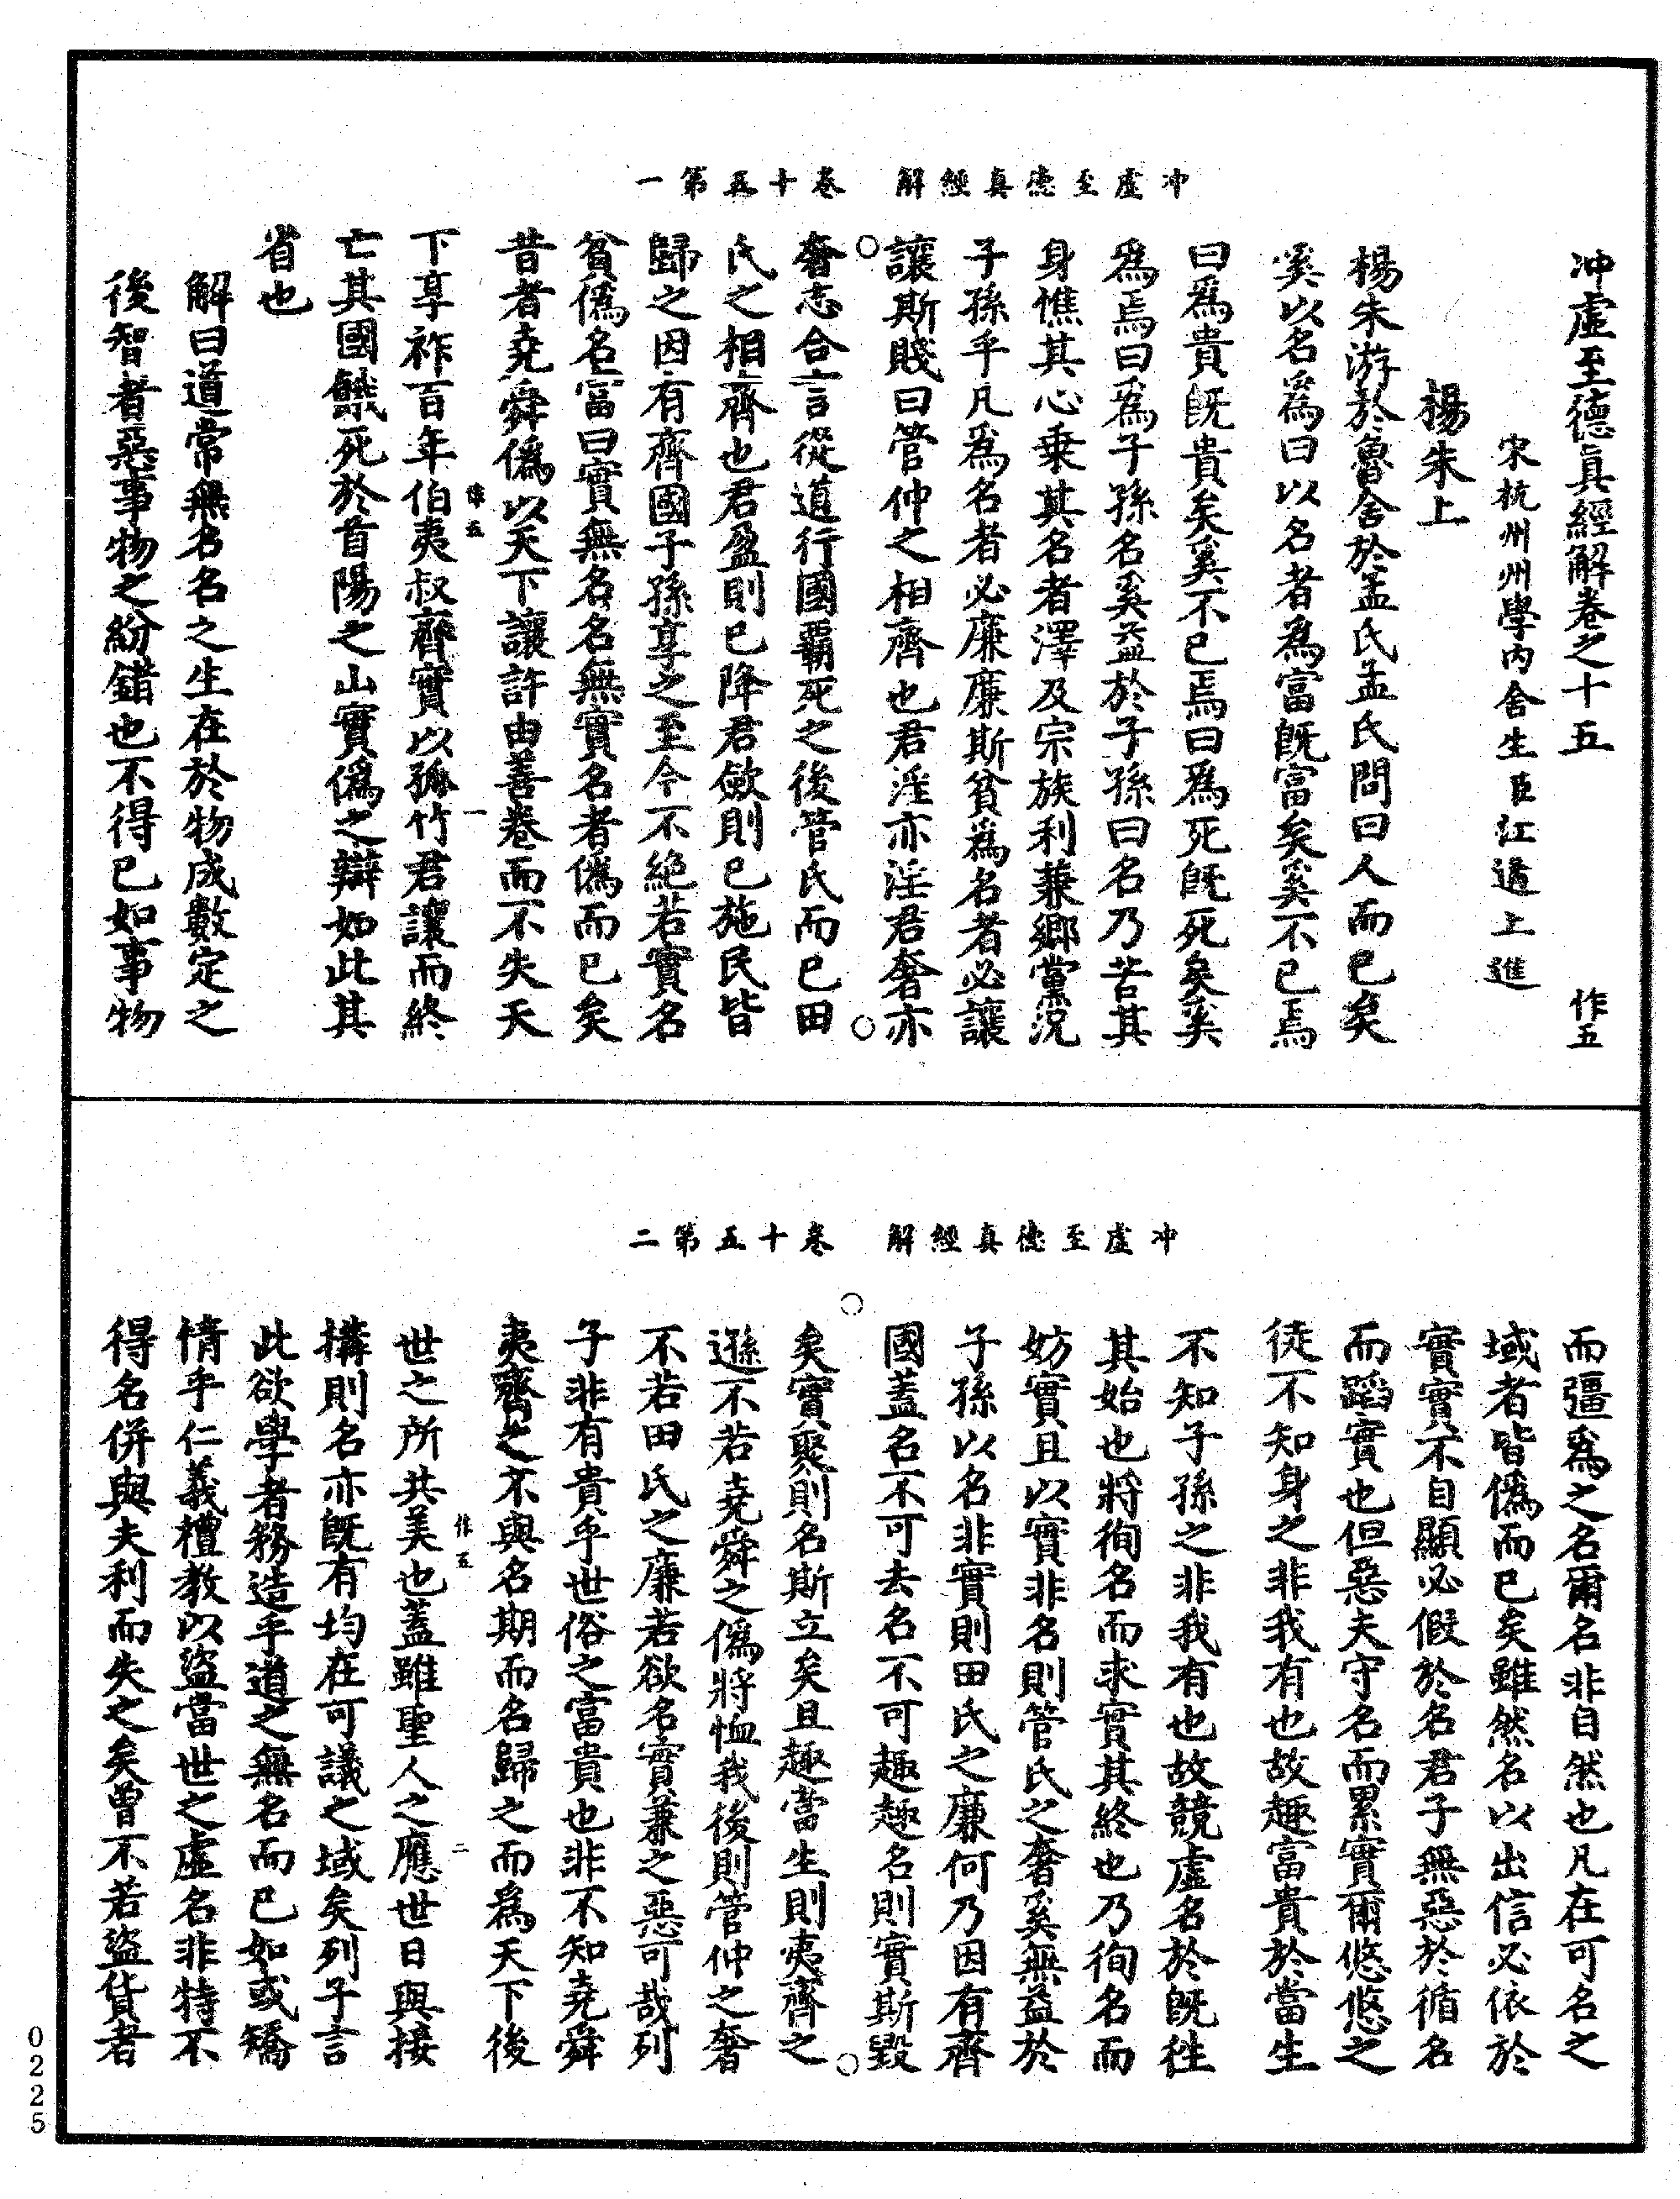 冲虛至德真經解　卷十五第一
冲虛至德眞經解卷之十五　作五
宋杭州州學內舍生臣江遹上進
楊朱上
楊朱游於魯舍於孟氏孟氏問曰人而已矣
奚以名爲曰以名者爲富旣富矣奚不已焉
曰爲貴旣貴矣奚不已焉曰爲死旣死矣奚
爲焉曰爲子孫名奚益於子孫曰名乃苦其
身憔其心乗其名者澤及宗族利兼鄉黨況
子孫乎凡爲名者必廉廉斯貧爲名者必讓
讓斯賤曰管仲之相齊也君淫亦淫君奢亦
奢志合言從道行國覇死之後管氏而已田
氏之相齊也君盈則已降君斂則已施民皆
歸之因有齊國子孫享之至今不絕若實名
貧僞名富曰實無名名無實名者僞而已矣
昔者堯舜僞以天下讓許由善卷而不失天
下享祚百年伯夷叔齊實以孤竹君讓而終
作五　一
亡其國餓死於首陽之山實僞之辯如此其
省也
解曰道常無名名之生在於物成數定之
後智者惡事物之紛錯也不得已如事物
冲虛至德真經解　卷十五第二
而彊爲之名爾名非自然也凡在可名之
域者皆僞而已矣雖然名以出信必依於
實實不自顯必假於名君子無惡於循名
而蹈實也但惡夫守名而累實爾悠悠之
徒不知身之非我有也故趣富貴於當生
不知子孫之非我有也故競虛名於旣往
其始也將徇名而求實其終也乃徇名而
妨實且以實非名則管氏之奢奚無益於
子孫以名非實則田氏之廉何乃因有齊
國蓋名不可去名不可趣趣名則實斯毀
矣實聚則名斯立矣且趣當生則夷齊之
遜不若堯舜之僞將恤我後則管仲之奢
不若田氏之廉若欲名實兼之惡可哉列
子非有貴乎世俗之富貴也非不知堯舜
夷齊之不與名期而名歸之而爲天下後
作五　二
世之所共美也蓋雖聖人之應世日與接
搆則名亦旣有均在可議之域矣列子言
此欲學者務造乎道之無名而已如或矯
情乎仁義禮敎以盜當世之虛名非特不
得名併與夫利而失之矣曾不若盜貨者
0225